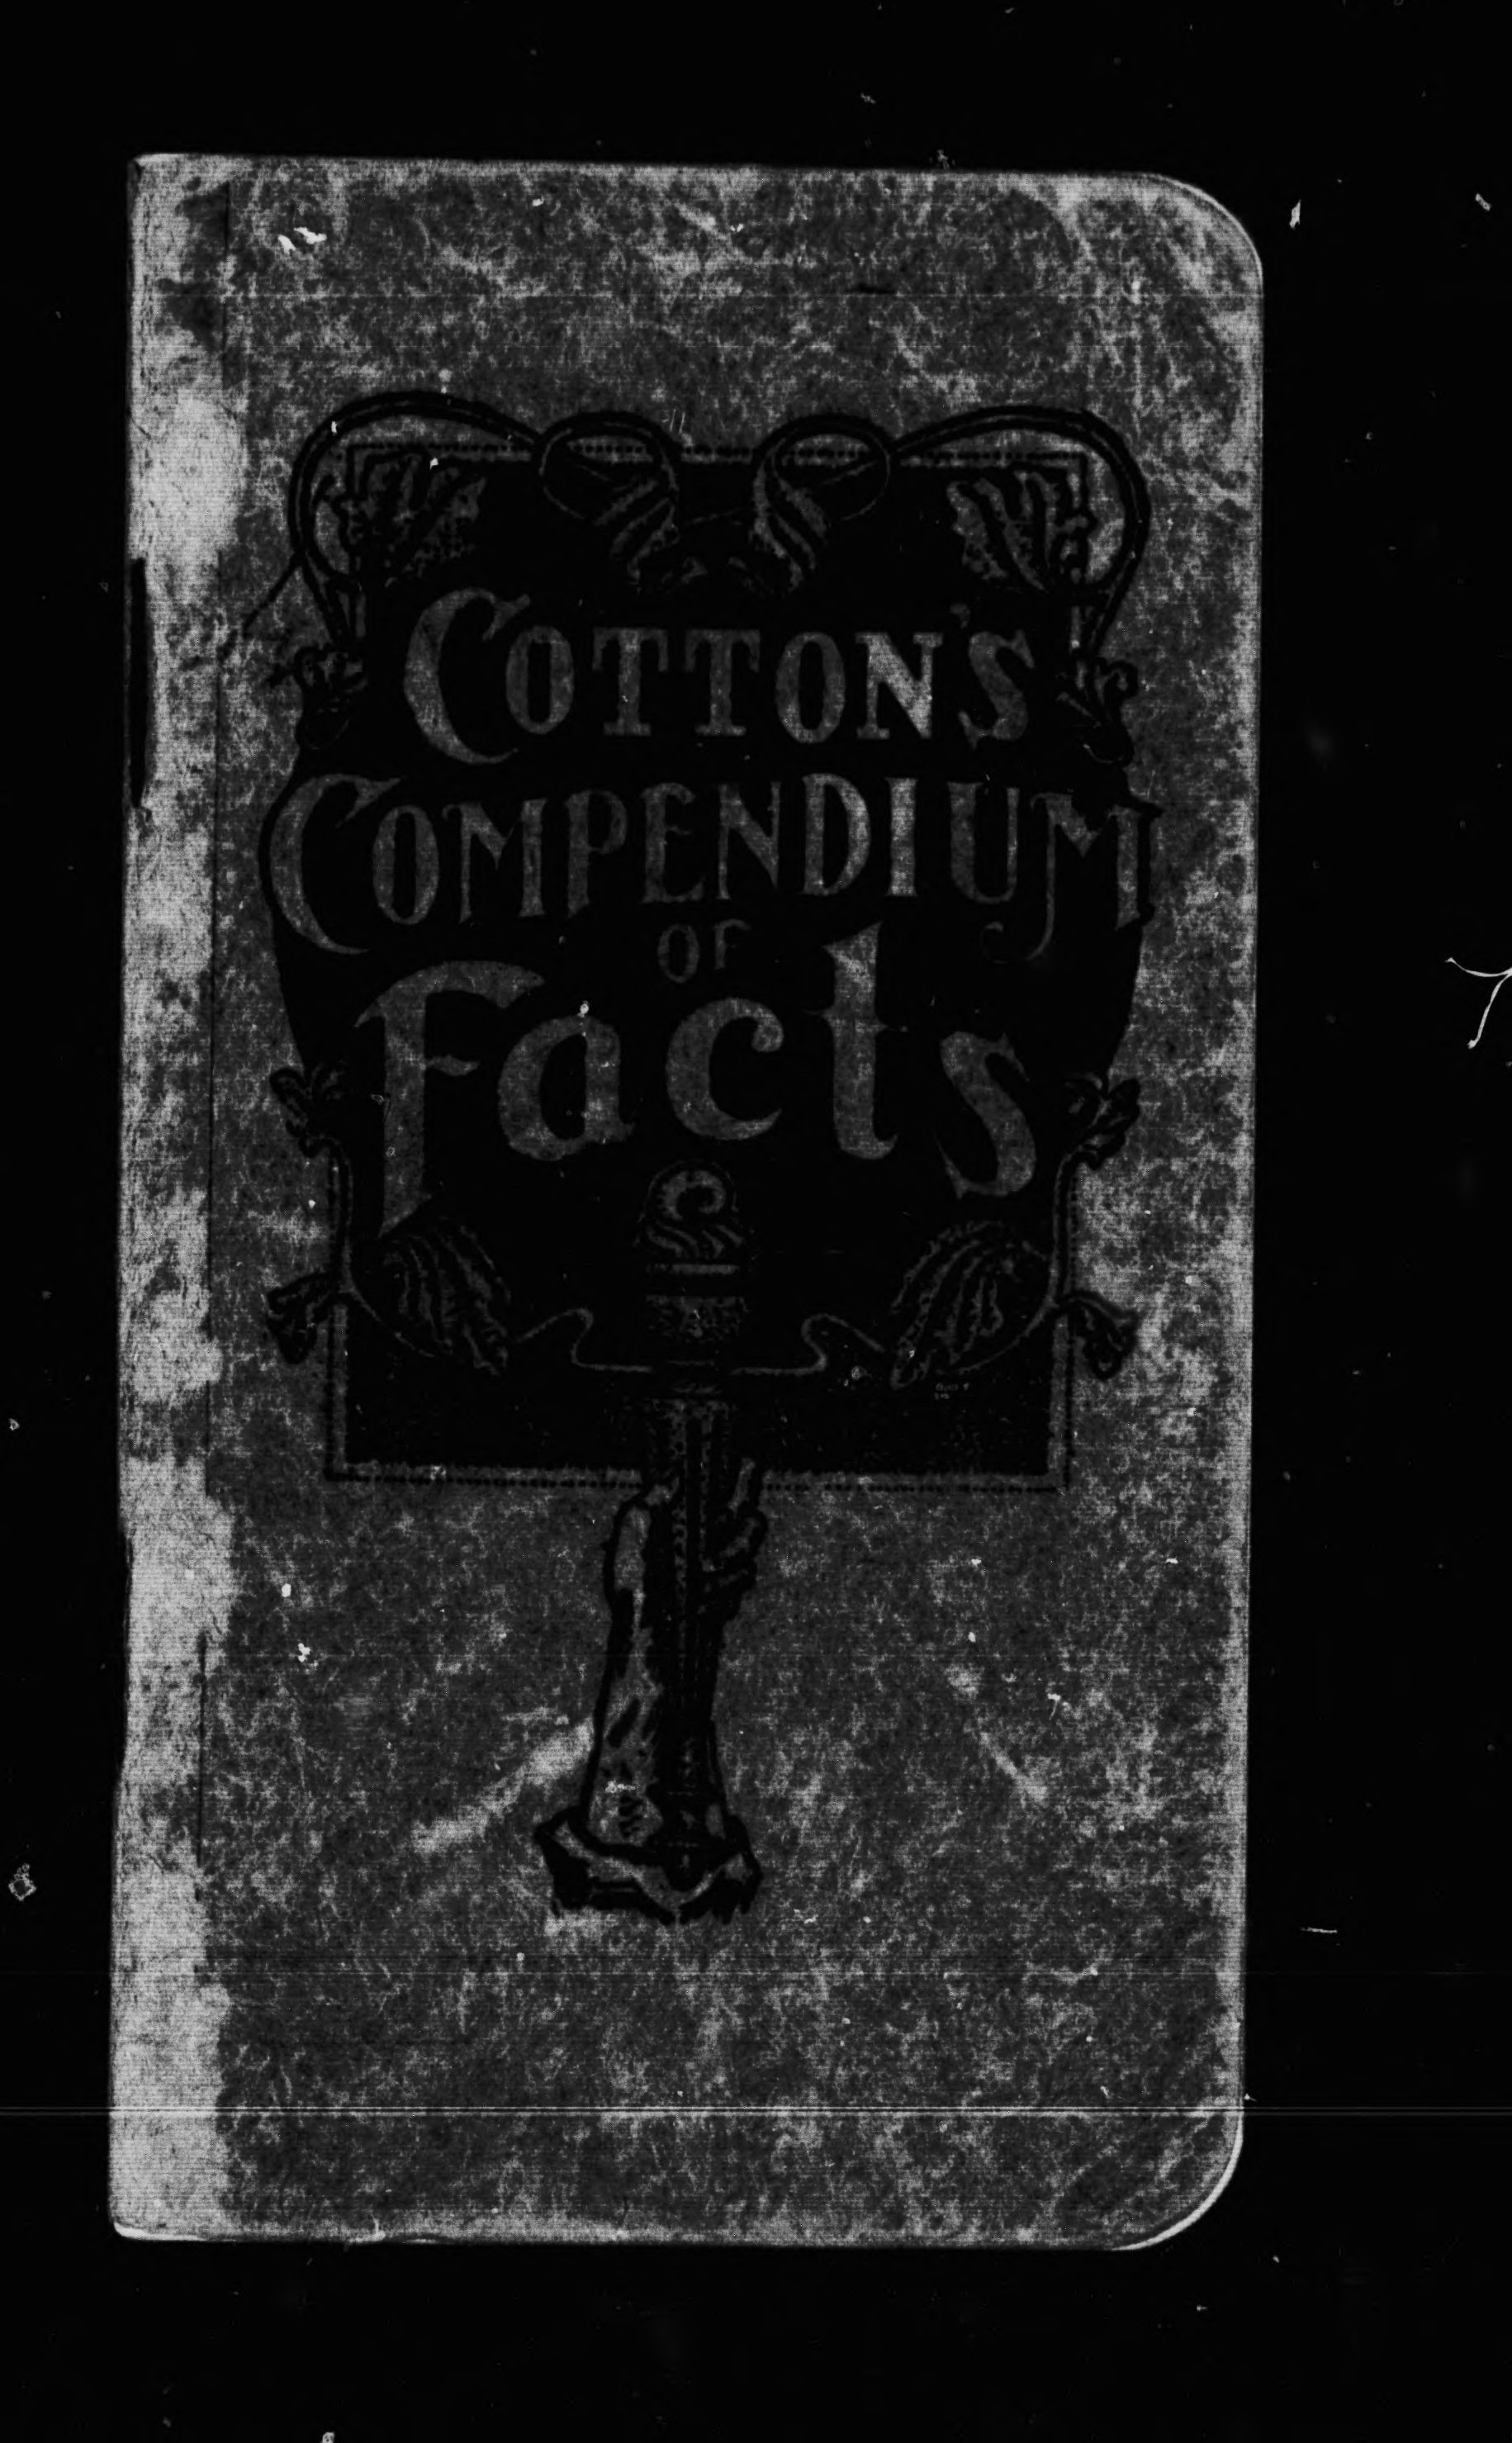 COTTON'S
COMPENDIUM
OF
Facts